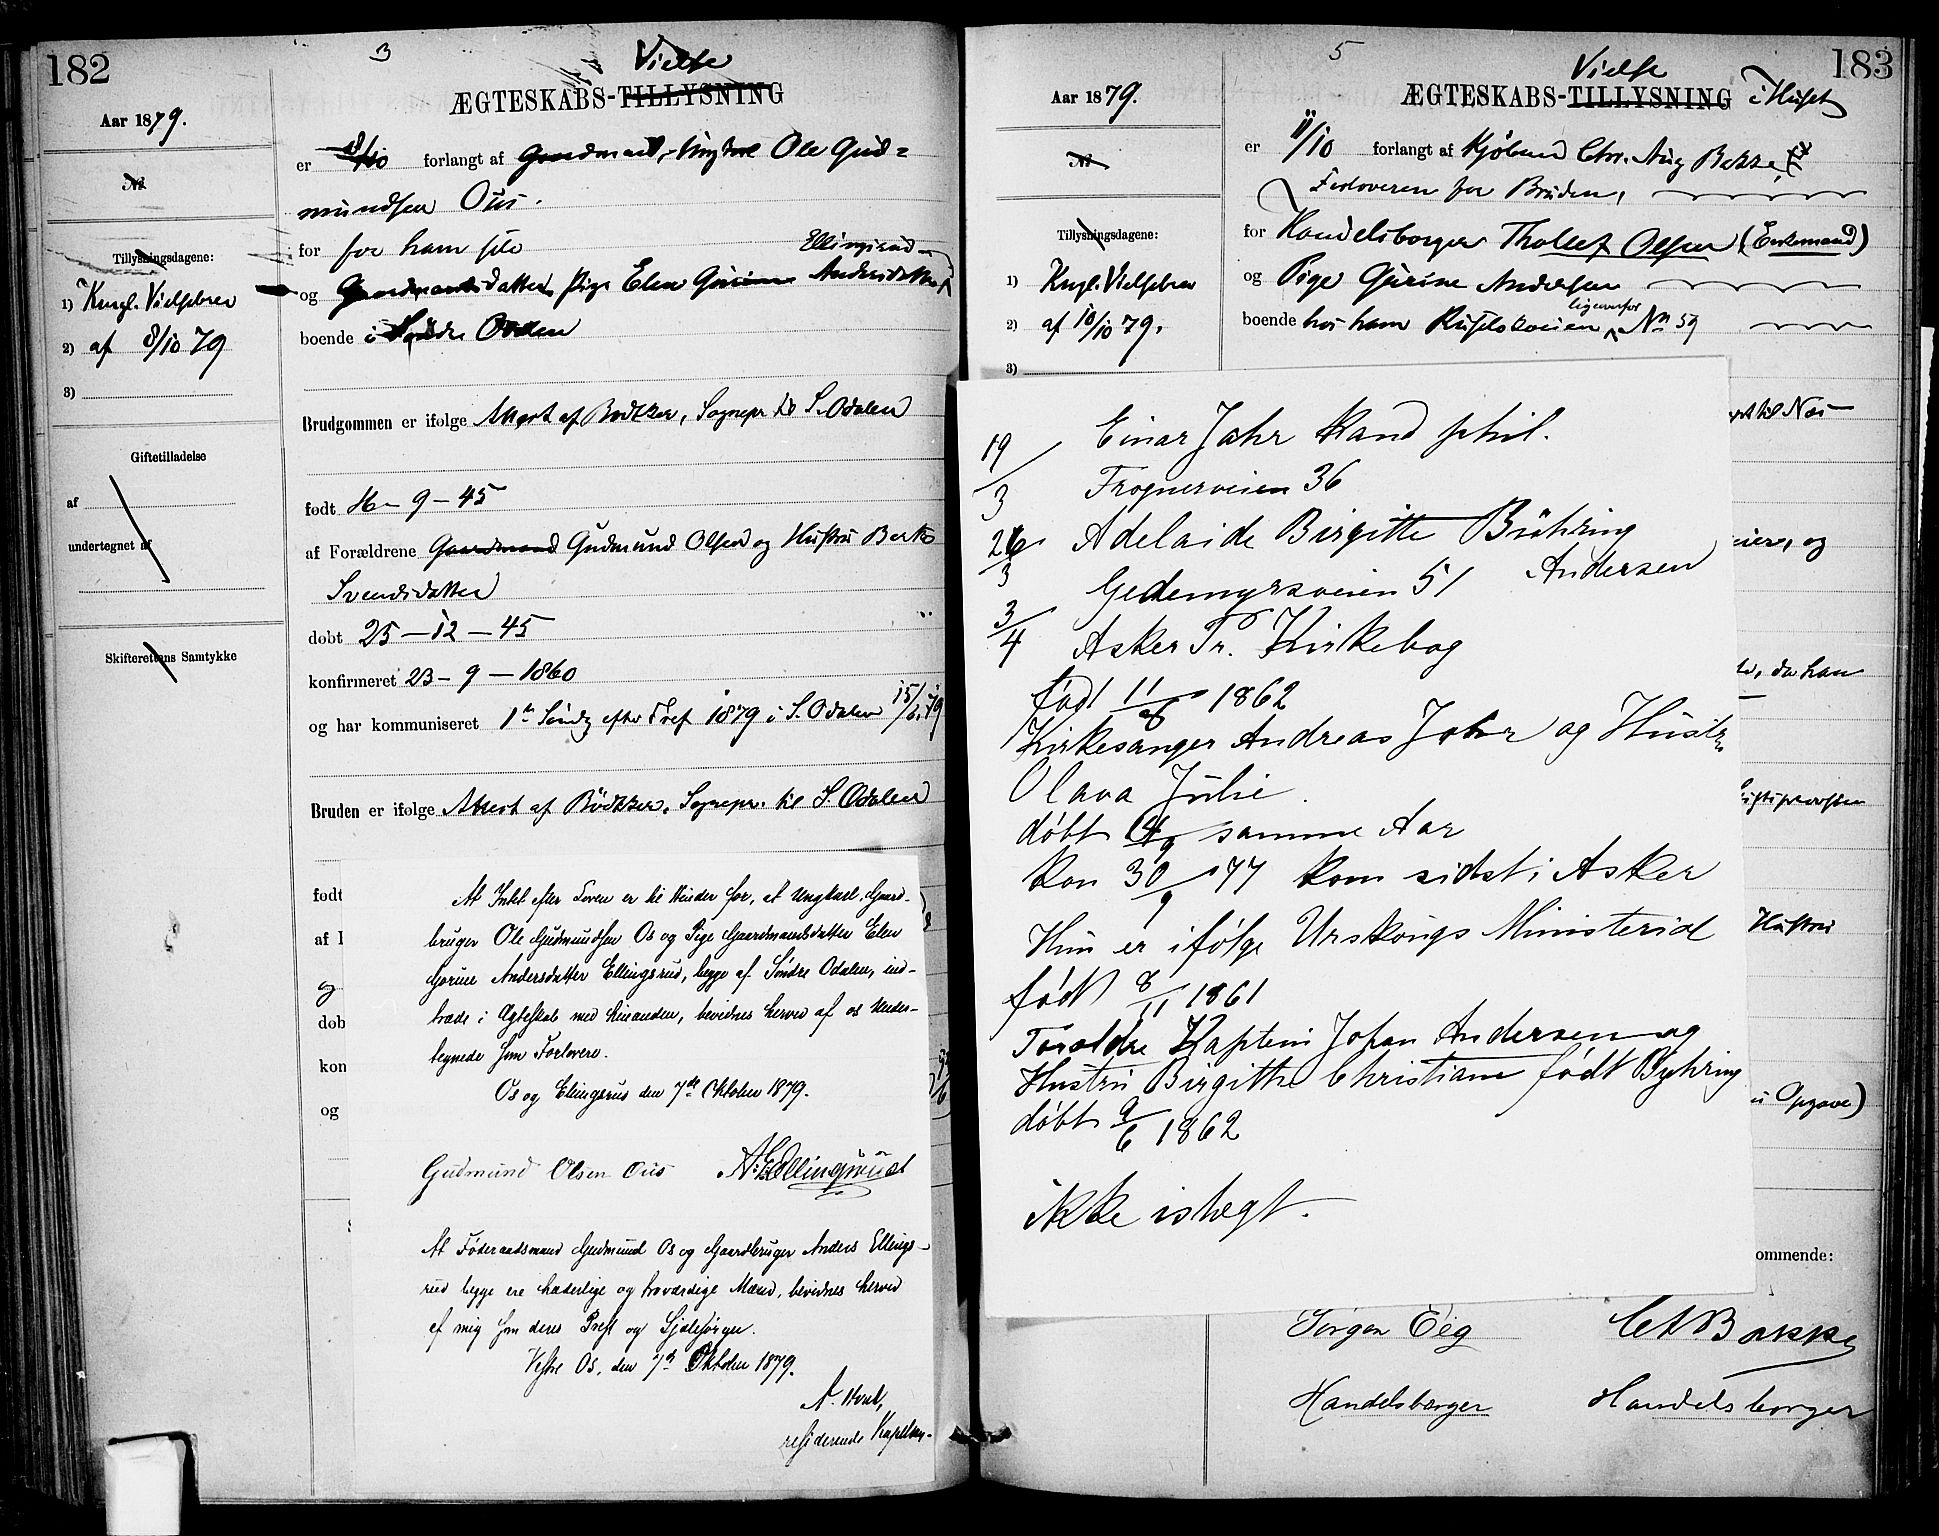 182
3
Vielse
ÆGTESKABS-TILLYSNING
Aar 1879.
No
er 8/10 forlangt af Gaardmand, Ungkarl Ole Gud=
mundsen Ous.
for for ham selv
Ellingsrud
og Gaardmandsdatter Pige Elen Gurine Andersdatter
boende i Søndre Odalen
Tillysningsdagene:
1) Kngl. Vielsebrev
2) af 8/10 79
3)
Brudgommen er ifølge Attest af Bødtker, Sognepr. til S. Odalen
Giftetilladelse
af
undertegnet af
Skifterettens Samtykke
født 16 - 9 - 45
af Forældrene Gaardmand Gudmund Olsen og Hustru Berte
Svendsdatter
døbt 25 - 12 - 45
konfirmeret 23 - 9 - 1860
og har kommuniseret 1ste Søndg efter Tref 1879 i S. Odalen 15/6 79
Bruden er ifølge Attest af Bødtker, Sognepr. til S. Odalen
født
af
og
døb
kon
og
At Intet efter Loven er til Hinder for, at Ungkarl, Gaard-
bruger Ole Gudmundsen Os og Pige Gaardmandsdatter Elen
Gorine Andersdatter Ellingsrud, begge af Søndre Odalen, ind-
træde i Ægteskab med hinanden, bevidnes herved af os Under-
tegnede som Forlovere.
Os og Elingsrud den 7de Oktober 1879.
Gudmund Olsen Ous A. Ellingsrud
At Føderaadsmand Gudmund Os og Gaardbruger Anders Ellings-
rud begge ere hæderlige og troværdige Mænd, bevidnes herved
af mig som deres Prest og Sjælesørger.
Vestre Os, den 7de Oktober 1879.
residerende Kapellan.
183
5
Vielse
ÆGTESKABS-TILLYSNING i Huset
Aar 1879.
No
er 11/10 forlangt af Kjøbmd Chr. Aug Bakke,
Forloveren for Bruden,
for Handelsborger Thollef Olsen (Enkemand)
og Pige Gurine Andersen
boende hos ham Ruseløkveien ligeoverfor No 59
Tillysningsdagene:
1) Kngl. Vielsebrev
2) af 10/10 79.
3)
19/3 Einar Jahr Kand phil.
Frognerveien 36
26/3 Adelaide Birgitte Bühring
Andersen
Gedemyrsveien 51
3/4 Asker Pr. Kirkebog
født 11/8 1862
Kirkesanger Andreas Jahr og Hustr
Olava Julie.
døbt 14/9 samme Aar
kon 30/9 77 kom sidst i Asker
Hun er ifølge Urskougs Ministerial
født 8/11 1861
Forældre Kaptein Johan Andersen og
Hustru Birgitte Christiane født Byhring
døbt 9/6 1862
ikke istregt.
til Næs
eier, og
da han
Stiftsprovsten
Hustru
Opgave)
ommende:
Jørgen Eeg
CABakke
Handelsborger
Handelsborger